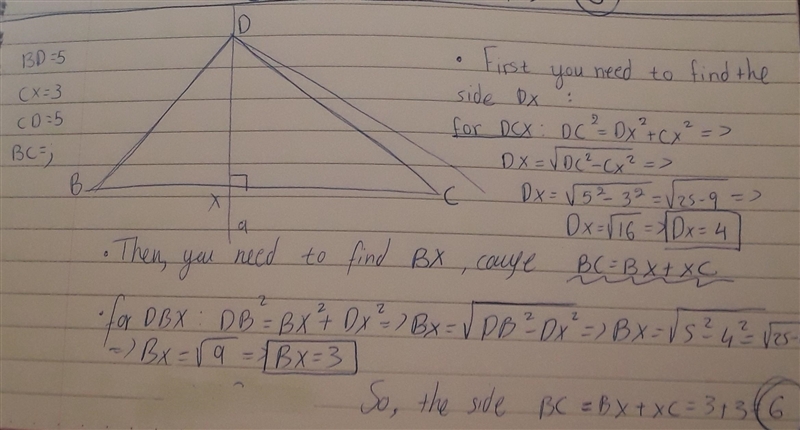 D
BD=5
CX=3
CD=5
BC=;
B
X
C
a
• First you need to find the
side DX :
for DCX: DC²=DX²+CX² =>
DX=√DC²-CX² =>
DX=√5²-3²=√25-9 =>
DX=√16 => DX=4
• Then, you need to find BX, cause BC=BX+XC
• for DBX: DB²=BX²+DX² => BX=√DB²-DX² => BX=√5²-4²=√25-
=> BX=√9 => BX=3
So, the side BC=BX+XC=3+3=6